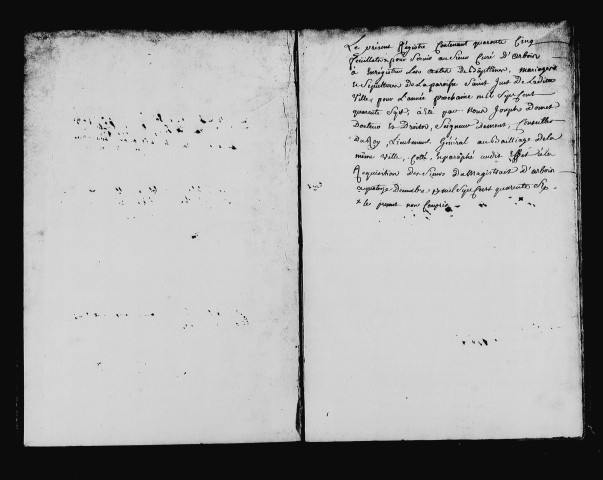 Le présent Régistre Contenant quarante Cinq
feuillets × pour Servir au Sieur Curé d'Arbois
à Enregistrer Les actes de Baptêmes, mariages
et Sepultures de La paroisse Saint Just De Ladite
Ville, pour L'année prochaine mil Sept Cent
quarante Sept, à été par Nous Joseph Domet
Docteur es Droits, Seigneur Conseiller
Du Roy, Lieutenant Général au Bailliage de la
même Ville, Coté, et paraphé audit Effet à la
Requisition des Sieurs Du Magistrat d'Arbois
mil Sept Cent quarante Six
× le present non Compris